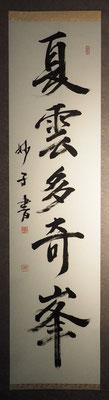 夏雲多奇峯
妙子書